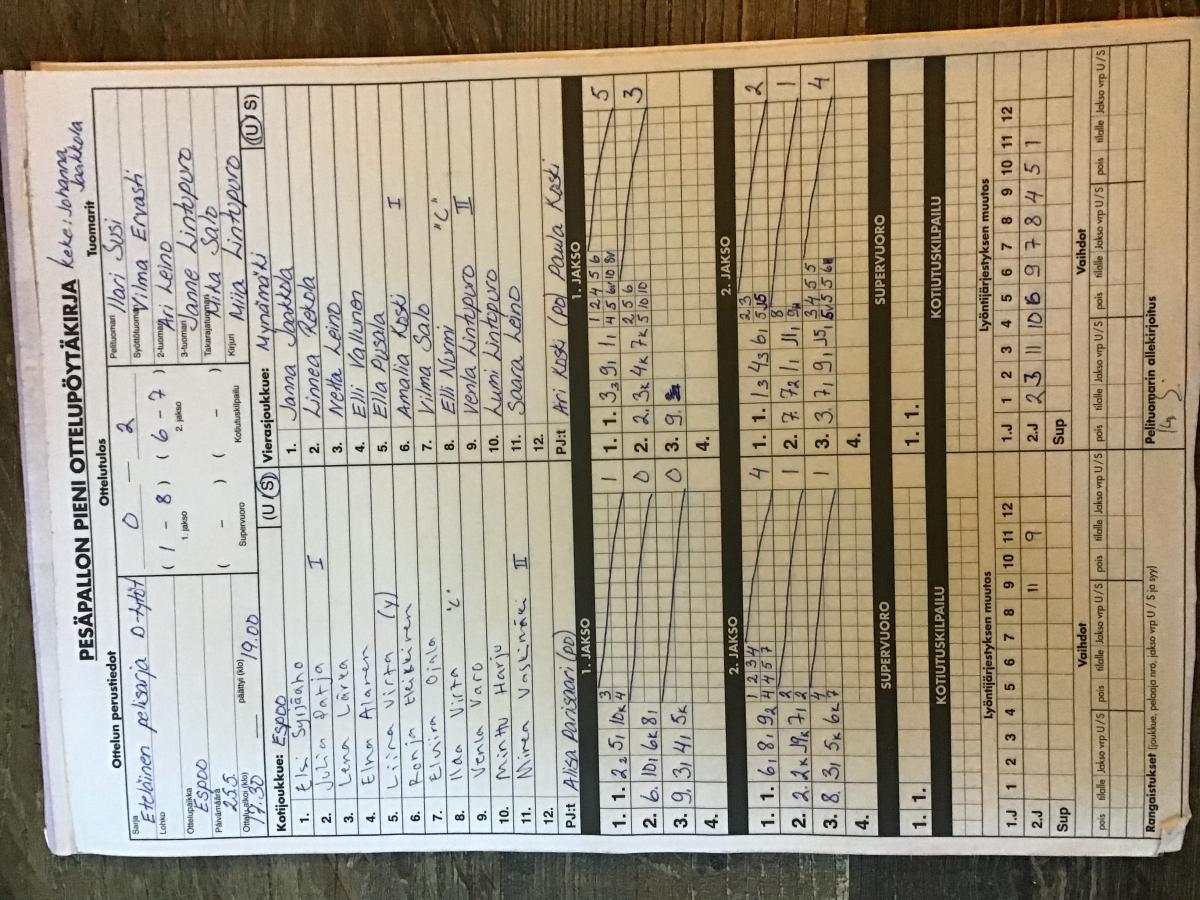 PESÄPALLON PIENI OTTELUPÖYTÄKIRJA Keke: Johanna Jaakkola
Ottelun perustiedot
Sarja
Eteläinen pelisarja D-tytöt
Lohko
Ottelupaikka
Espoo
Päivämäärä
25.5
Ottelu alkoi (klo)
17.30
päättyi (klo) 19.00
Ottelutulos
0 – 2
( 1 – 8 ) ( 6 – 7 )
1. jakso 2. jakso
( – ) ( – )
Supervuoro Kotiutuskilpailu
Tuomarit
Pelituomari Ilari Susi
Syöttötuomari Vilma Ervasti
2-tuomari Ari Leino
3-tuomari Janne Lintupuro
Takarajatuomari Mika Salo
Kirjuri Miia Lintupuro
Kotijoukkue: Espoo (U / S)
1. Elsi Syrjäaho
2. Julia Patja I
3. Lena Lärka
4. Elna Alanen
5. Liina Virta (y)
6. Ronja Heikkinen
7. Elviira Ojala
8. Ilaa Virta "C"
9. Venla Varo
10. Minttu Harju
11. Minea Vaskimäki II
12.
PJ:t Alisa Parisaari (pp)
Vierasjoukkue: Mynämäki (U / S)
1. Janna Jaakkola
2. Linnea Rekola
3. Netta Leino
4. Elli Vallunen
5. Ella Pusala
6. Amalia Koski I
7. Vilma Salo
8. Elli Nurmi "C"
9. Venla Lintupuro II
10. Lumi Lintupuro
11. Saara Leino
12.
PJ:t Ari Koski (pp) Paula Koski
1. JAKSO
1. 1. 2₂ 5₁ 10k 3 4 1
2. 6. 10₁ 6k 8₁ 0
3. 9. 3₁ 4₁ 5k 0
4.
1. JAKSO
1. 1. 3₃ 9₁ 1₁ 5
2. 2. 3k 4k 7k 3
3. 9.
4.
2. JAKSO
1. 1. 6₁ 8₁ 9₂ 1 2 3 4 4 4 5 7 4
2. 2. 2k 1
3. 8. 3₁ 5k 6k 1
4.
2. JAKSO
1. 1. 1₃ 4₃ 6₁ 2
2. 7. 7₂ 1₁ 1
3. 3. 7₁ 9₁ 4
4.
SUPERVUORO
1. 1.
SUPERVUORO
1. 1.
KOTIUTUSKILPAILU
KOTIUTUSKILPAILU
Lyöntijärjestyksen muutos
1.J 1 2 3 4 5 6 7 8 9 10 11 12
2.J 11 9
Sup
Lyöntijärjestyksen muutos
1.J 1 2 3 4 5 6 7 8 9 10 11 12
2.J 2 3 11 10 6 9 7 8 4 5 1
Sup
Vaihdot
pois tilalle Jakso vrp U / S pois tilalle Jakso vrp U / S pois tilalle Jakso vrp U / S
Vaihdot
pois tilalle Jakso vrp U / S pois tilalle Jakso vrp U / S pois tilalle Jakso vrp U / S
Rangaistukset (joukkue, pelaaja nro, jakso vrp U / S ja syy)
Pelituomarin allekirjoitus